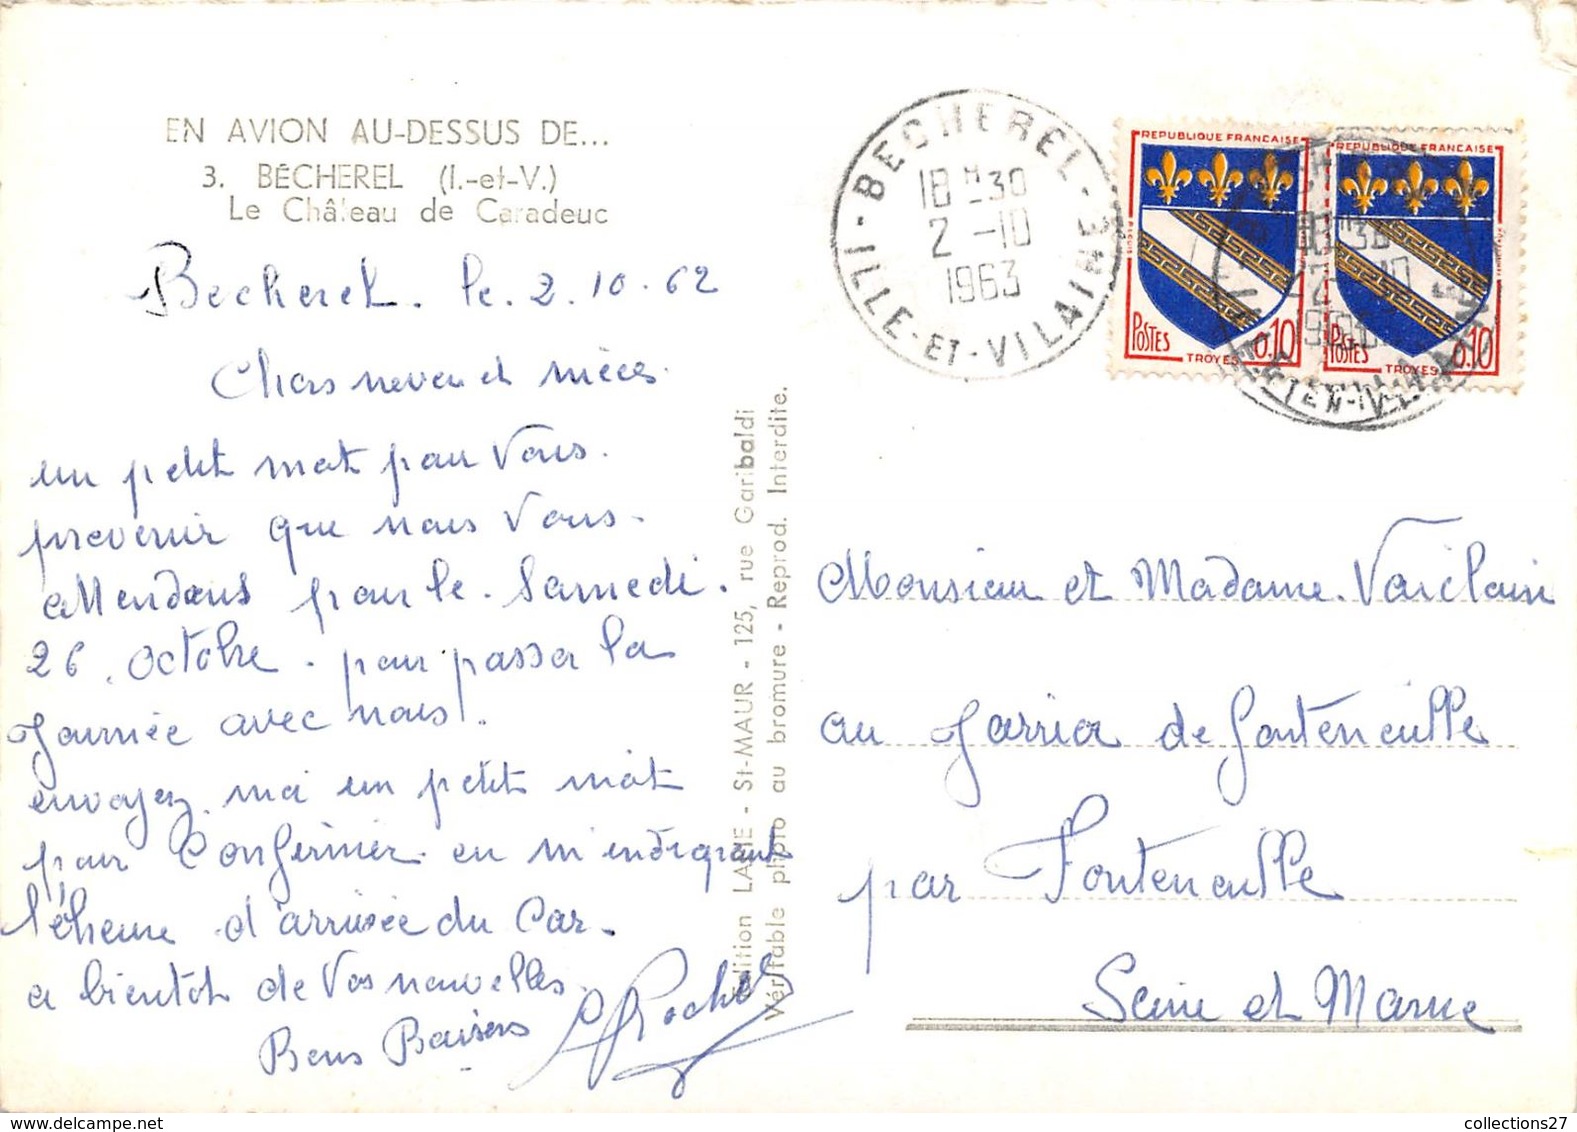 EN AVION AU-DESSUS DE...
3. BÉCHEREL (I.-et-V.)
Le Château de Caradeuc
Becherel. le. 2.10.62
Chers neveu et nièces.
un petit mot pour Vous.
prevenir que nous Vous.
attendons pour le. Samedi.
26. octobre. pour passer la
Journée avec nous.
envoyez. moi un petit mot
pour Confirmer en m'indiquant
l'heure d'arrivée du Car.
a bientôt de Vos nouvelles.
Bons Baisers
Edition LAPIE - St-MAUR - 125, rue Garibaldi
Véritable photo au bromure - Reprod. Interdite.
BECHEREL - ILLE-ET-VILAINE
18 H 30
2 - 10
1963
REPUBLIQUE FRANCAISE
POSTES
0.10
TROYES
REPUBLIQUE FRANCAISE
POSTES
0.10
TROYES
Monsieur et Madame. Vaiclain
au de Fonteneille
par Fonteneille
Seine et Marne
collections27